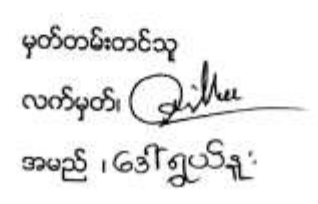 မှတ်တမ်းတင်သူ
လက်မှတ်၊
အမည် ၊ ဒေါ်ရွယ်နူး